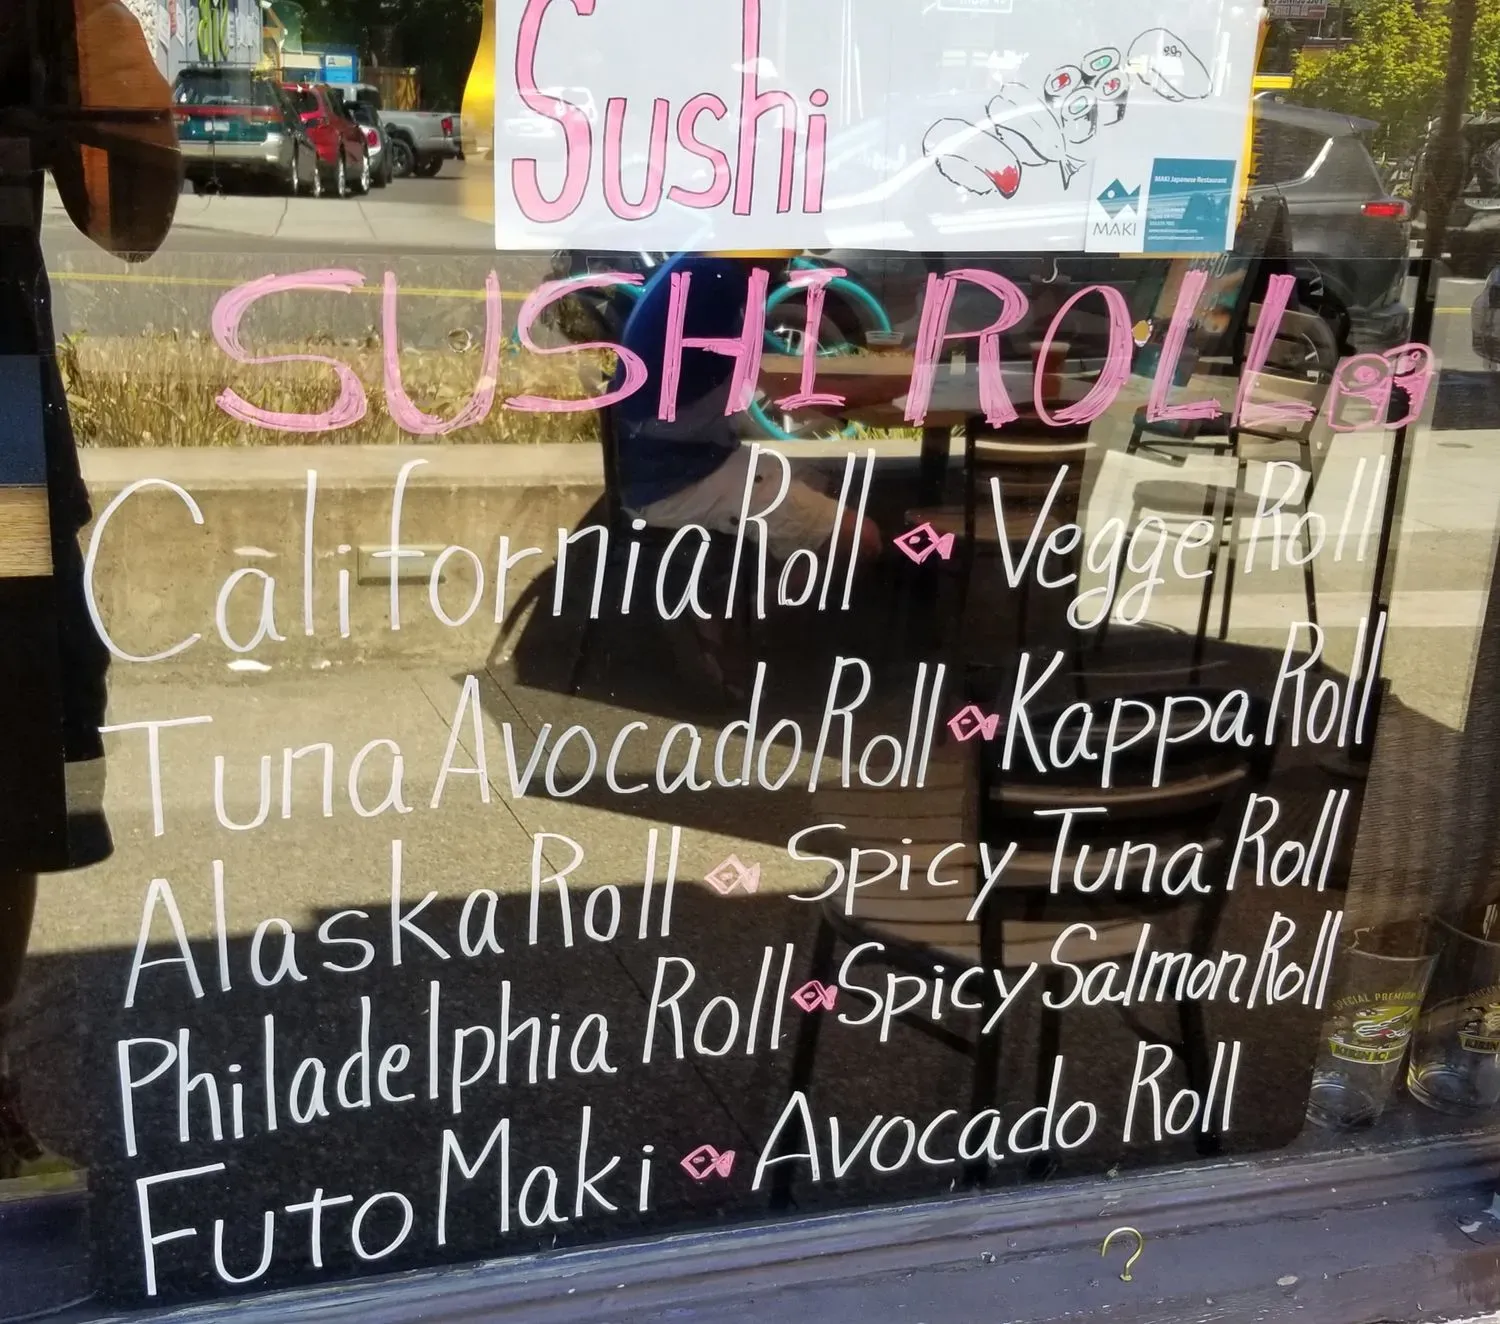 Sushi
MAKI Japanese Restaurant
MAKI
SUSHI ROLL
California Roll Vegge Roll
Tuna Avocado Roll Kappa Roll
Alaska Roll Spicy Tuna Roll
Philadelphia Roll Spicy Salmon Roll
Futo Maki Avocado Roll
SPECIAL PREMIUM
KIRIN ICHI
KIRIN